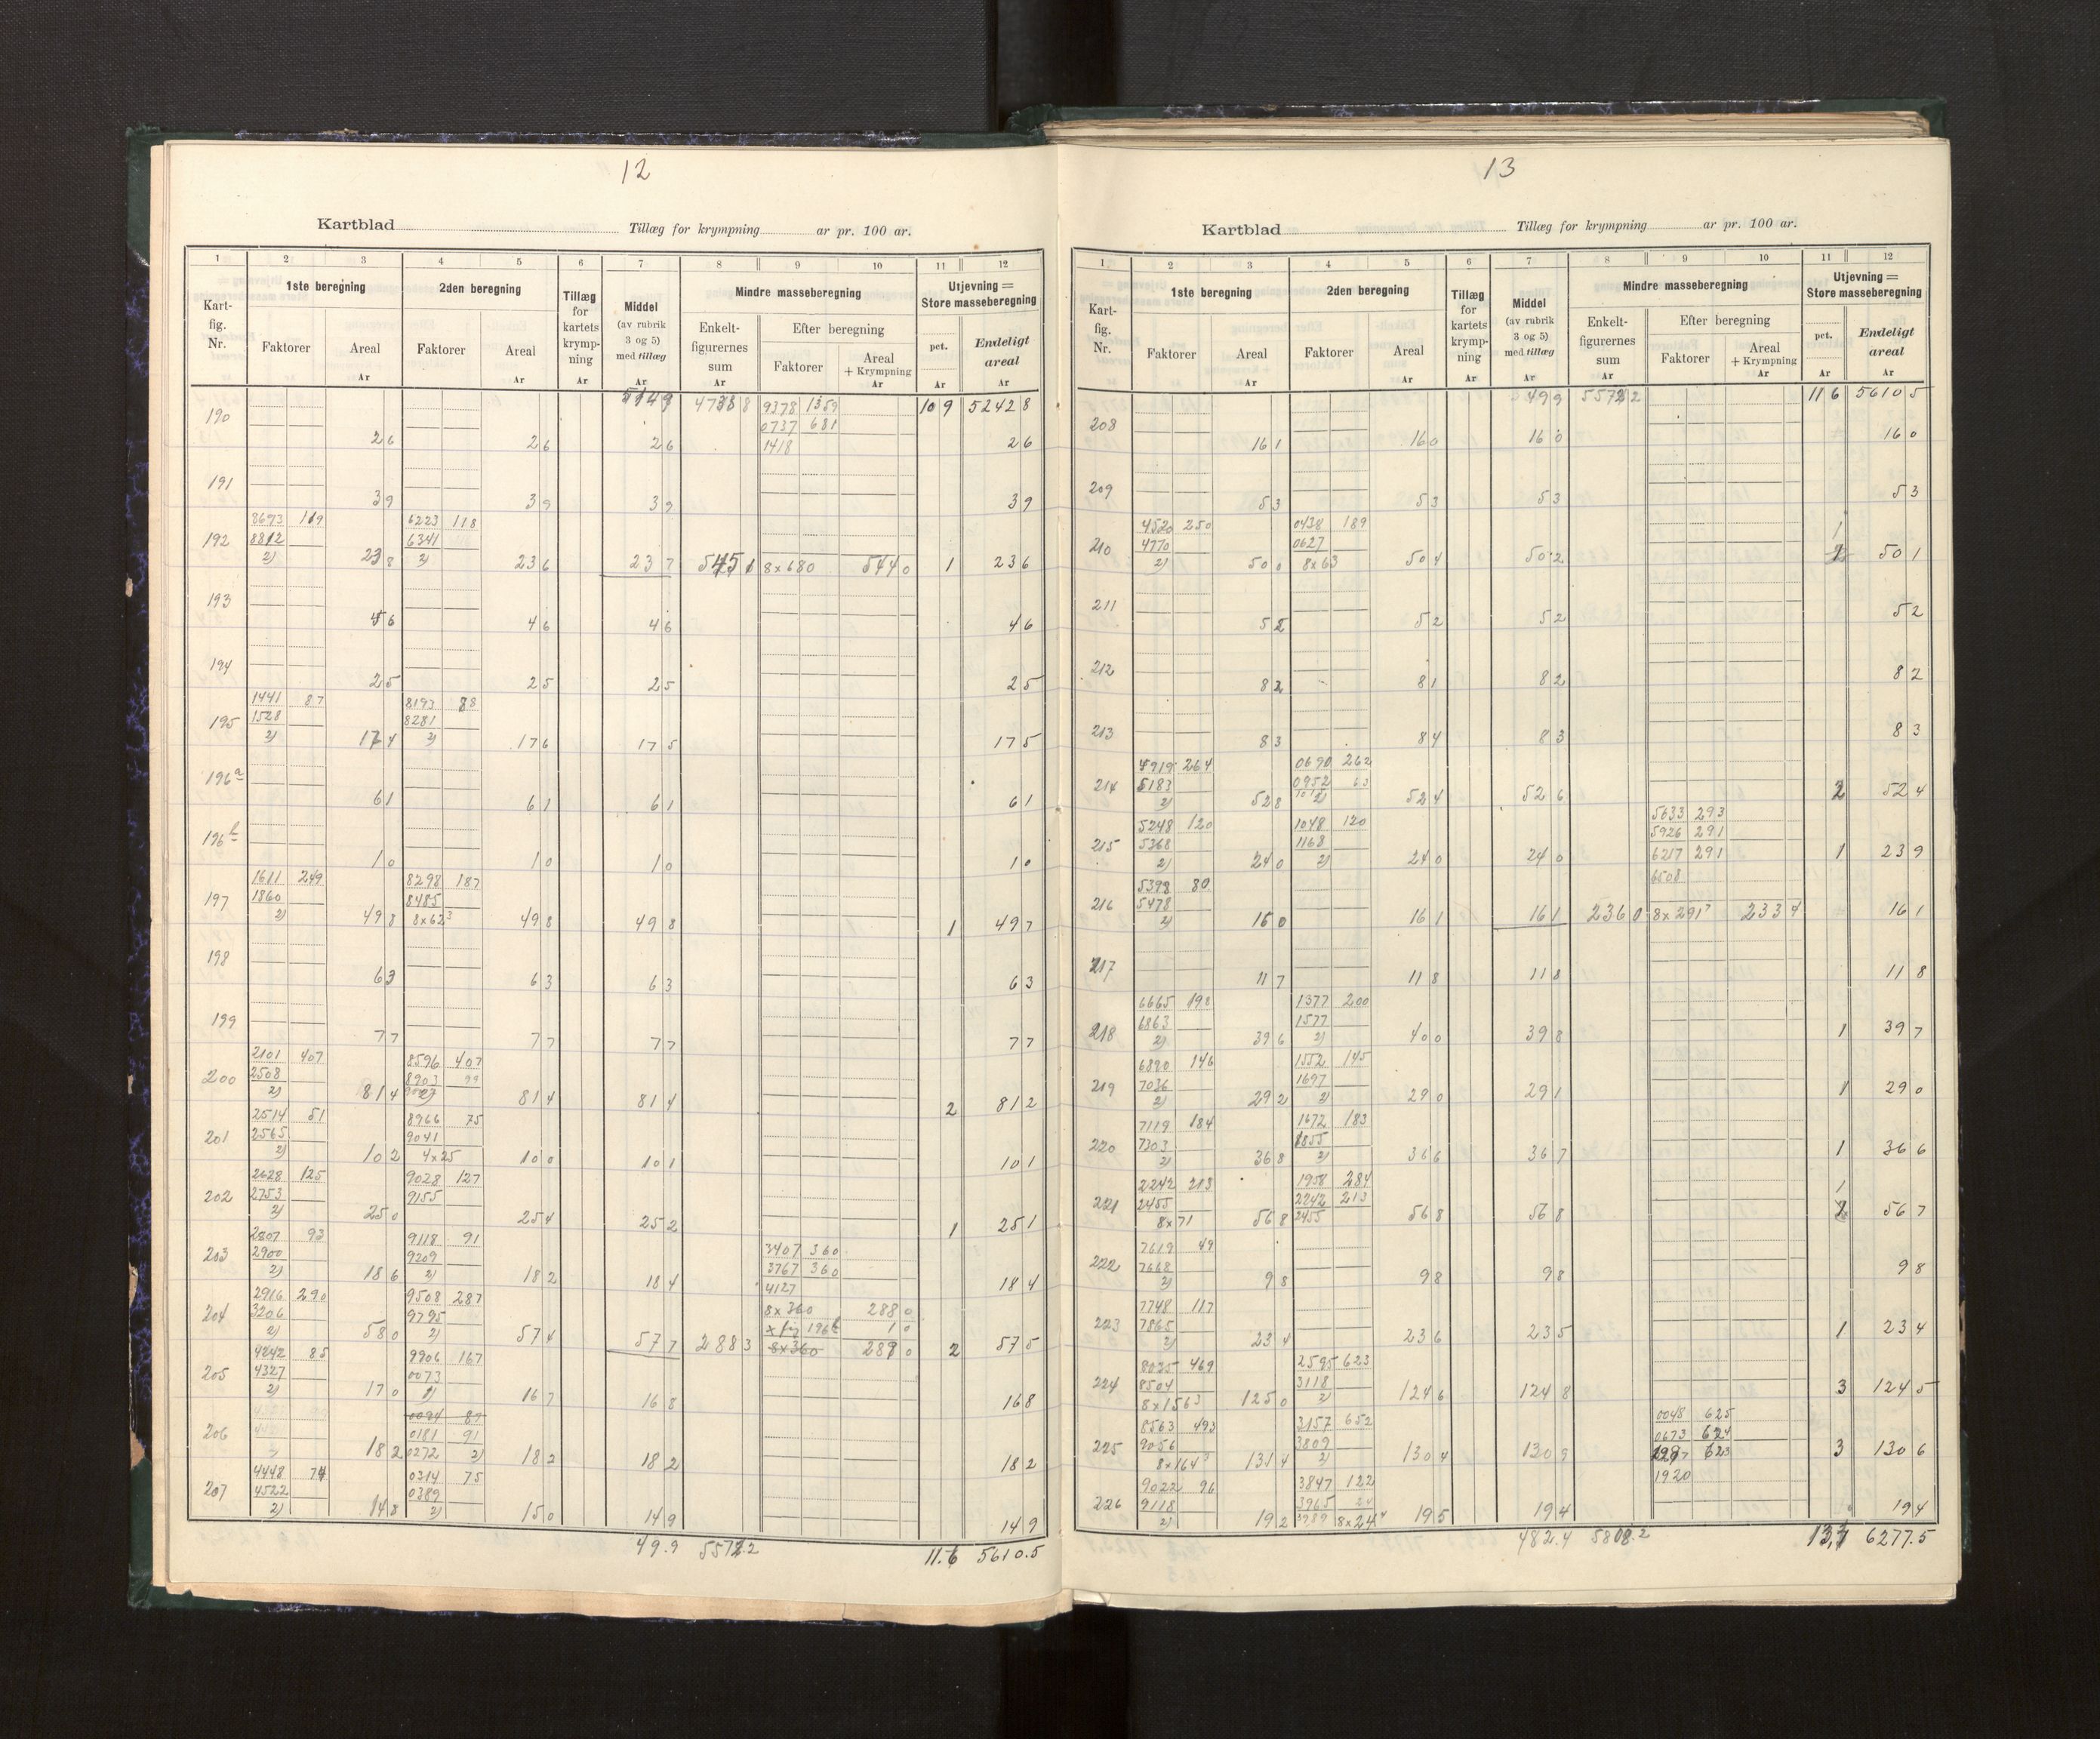 12
Kartblad Tillæg for krympning ar pr. 100 ar.
1 2 3 4 5 6 7 8 9 10 11 12
Kart-fig. Nr. 1ste beregning 2den beregning Tillæg for kartets krympning Middel (av rubrik 3 og 5) med tillæg Mindre masseberegning Utjevning = Store masseberegning
Faktorer Areal Faktorer Areal Enkelt-figurernes sum Efter beregning pct. Endeligt areal
Faktorer Areal + Krympning
Ar Ar Ar Ar Ar Ar Ar Ar
9378 1359 10 9 5242 8
0737 681
190 2 6 2 6 2 6 1418 2 6
191 3 9 3 9 3 9 3 9
8693 119 6223 118
192 8812 6341
2) 23 8 2) 23 6 23 7 545 1 8x680 544 0 1 23 6
193 4 6 4 6 4 6 4 6
194 2 5 2 5 2 5 2 5
1441 87 8193 88
195 1528 8281
2) 17 4 2) 17 6 17 5 17 5
196a 6 1 6 1 6 1 6 1
196b 1 0 1 0 1 0 1 0
1611 249 8298 187
197 1860 8485
2) 49 8 8x62³ 49 8 49 8 1 49 7
198 6 3 6 3 6 3 6 3
199 7 7 7 7 7 7 7 7
2101 407 8596 407
200 2508 8903 99
2) 81 4 2) 81 4 81 4 2 81 2
2514 51 8966 75
201 2565 9041
2) 10 2 4x25 10 0 10 1 10 1
2628 125 9028 127
202 2753 9155
2) 25 0 25 4 25 2 1 25 1
2807 93 9118 91 3407 360
203 2900 9209 3767 360
2) 18 6 2) 18 2 18 4 4127 18 4
2916 290 9508 287 8x360 288 0
204 3206 9795 x fig 196b 1 0
2) 58 0 2) 57 4 57 7 288 3 8x360 289 0 2 57 5
4242 85 9906 167
205 4327 0073
2) 17 0 1) 16 7 16 8 16 8
0094 87
206 0181 91
18 2 0272 2) 18 2 18 2 18 2
4448 74 0314 75
207 4522 0389
2) 14 8 2) 15 0 14 9 14 9
49.9 5572.2 11.6 5610.5
13
Kartblad Tillæg for krympning ar pr. 100 ar.
1 2 3 4 5 6 7 8 9 10 11 12
Kart-fig. Nr. 1ste beregning 2den beregning Tillæg for kartets krympning Middel (av rubrik 3 og 5) med tillæg Mindre masseberegning Utjevning = Store masseberegning
Faktorer Areal Faktorer Areal Enkelt-figurernes sum Efter beregning pct. Endeligt areal
Faktorer Areal + Krympning
Ar Ar Ar Ar Ar Ar Ar Ar
49 9 5572 2 11 6 5610 5
208 16 1 16 0 16 0 16 0
209 5 3 5 3 5 3 5 3
4520 250 0438 189 1
210 4770 0627
2) 50 0 8x63 50 4 50 2 50 1
211 5 2 5 2 5 2 5 2
212 8 2 8 1 8 2 8 2
213 8 3 8 4 8 3 8 3
4919 264 0690 262
214 5183 0952 63
2) 52 8 2) 52 4 52 6 2 52 4
5248 120 1048 120 5633 293
215 5368 1168 5926 291
2) 24 0 2) 24 0 24 0 6217 291 1 23 9
5398 80 6508
216 5478
2) 16 0 16 1 16 1 236 0 8x291⁷ 233 4 16 1
217 11 7 11 8 11 8 11 8
6665 198 1377 200
218 6863 1577
2) 39 6 2) 40 0 39 8 1 39 7
6890 146 1552 145
219 7036 1697
2) 29 2 2) 29 0 29 1 1 29 0
7119 184 1672 183
220 7303 1855
2) 36 8 2) 36 6 36 7 1 36 6
2242 213 1958 284 1
221 2455 2242 213
8x71 56 8 2455 56 8 56 8 56 7
7619 49
222 7668
2) 9 8 9 8 9 8 9 8
7748 117
223 7865
2) 23 4 23 6 23 5 1 23 4
8035 469 2595 623
224 8504 3118
8x156³ 125 0 2) 124 6 124 8 3 124 5
8563 493 3157 652 0048 625
225 9056 3809 0673 624
8x164³ 131 4 2) 130 4 130 9 1297 623 3 130 6
9022 96 3847 122 1920
226 9118 3965 24
2) 19 2 3989 8x24⁴ 19 5 19 4 19 4
482.4 5808.2 6277.5